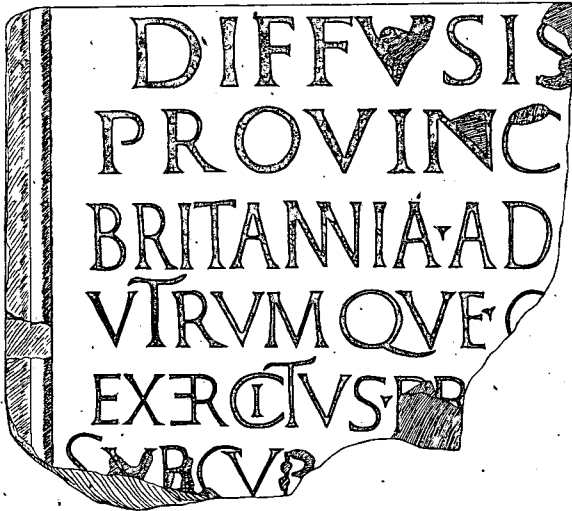 DIFFVSIS
PROVINC
BRITANNIA·AD
VTRVMQVE·
EXERCITVS·PR
SVBCVR